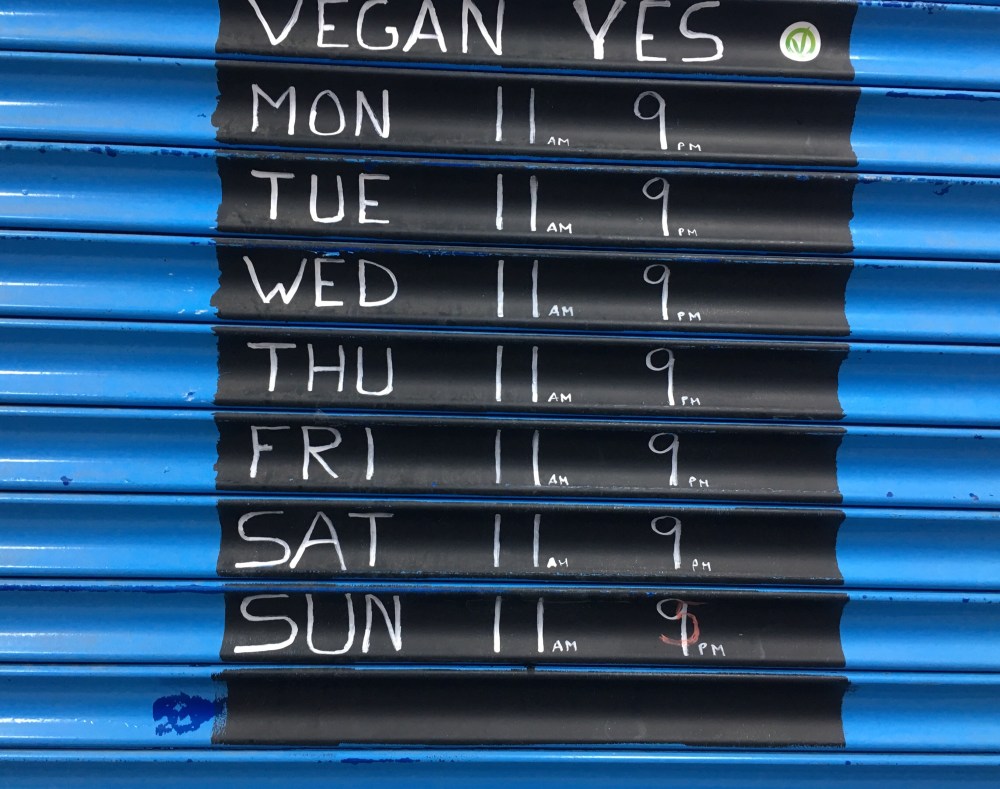 VEGAN YES
MON 11 AM 9 PM
TUE 11 AM 9 PM
WED 11 AM 9 PM
THU 11 AM 9 PM
FRI 11 AM 9 PM
SAT 11 AM 9 PM
SUN 11 AM 5 PM